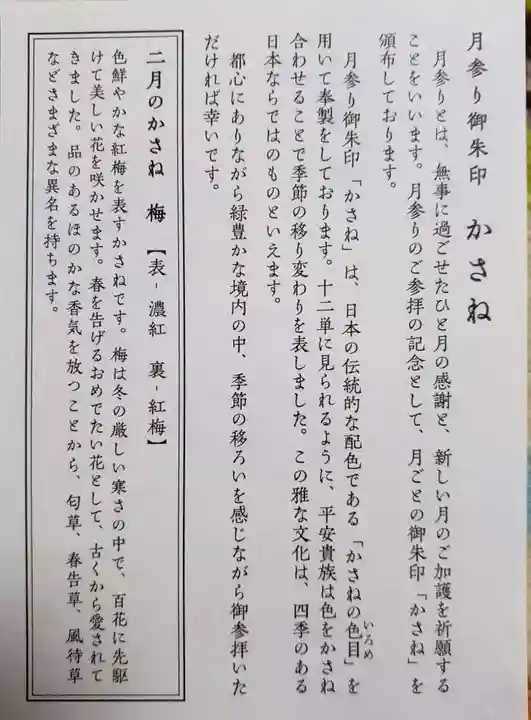 月参り御朱印　かさね
月参りとは、無事に過ごせたひと月の感謝と、新しい月のご加護を祈願する
ことをいいます。月参りのご参拝の記念として、月ごとの御朱印「かさね」を
頒布しております。
月参り御朱印「かさね」は、日本の伝統的な配色である「かさねの色目」を
いろめ
用いて奉製をしております。十二単に見られるように、平安貴族は色をかさね
合わせることで季節の移り変わりを表しました。この雅な文化は、四季のある
日本ならではのものといえます。
都心にありながら緑豊かな境内の中、季節の移ろいを感じながら御参拝いた
だければ幸いです。
二月のかさね　梅　【表-濃紅　裏-紅梅】
色鮮やかな紅梅を表すかさねです。梅は冬の厳しい寒さの中で、百花に先駆
けて美しい花を咲かせます。春を告げるおめでたい花として、古くから愛されて
きました。品のあるほのかな香気を放つことから、匂草、春告草、風待草
などさまざまな異名を持ちます。